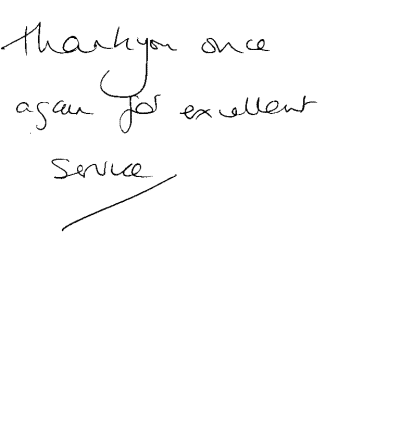 Thankyou once
again for excellent
Service